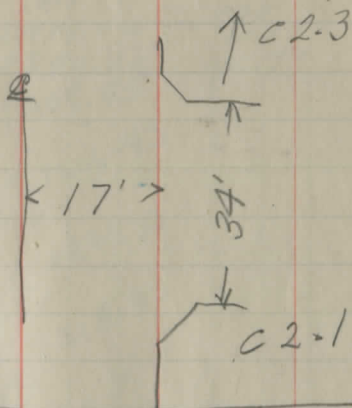 C 2.3
℄
17'
34'
C 2.1